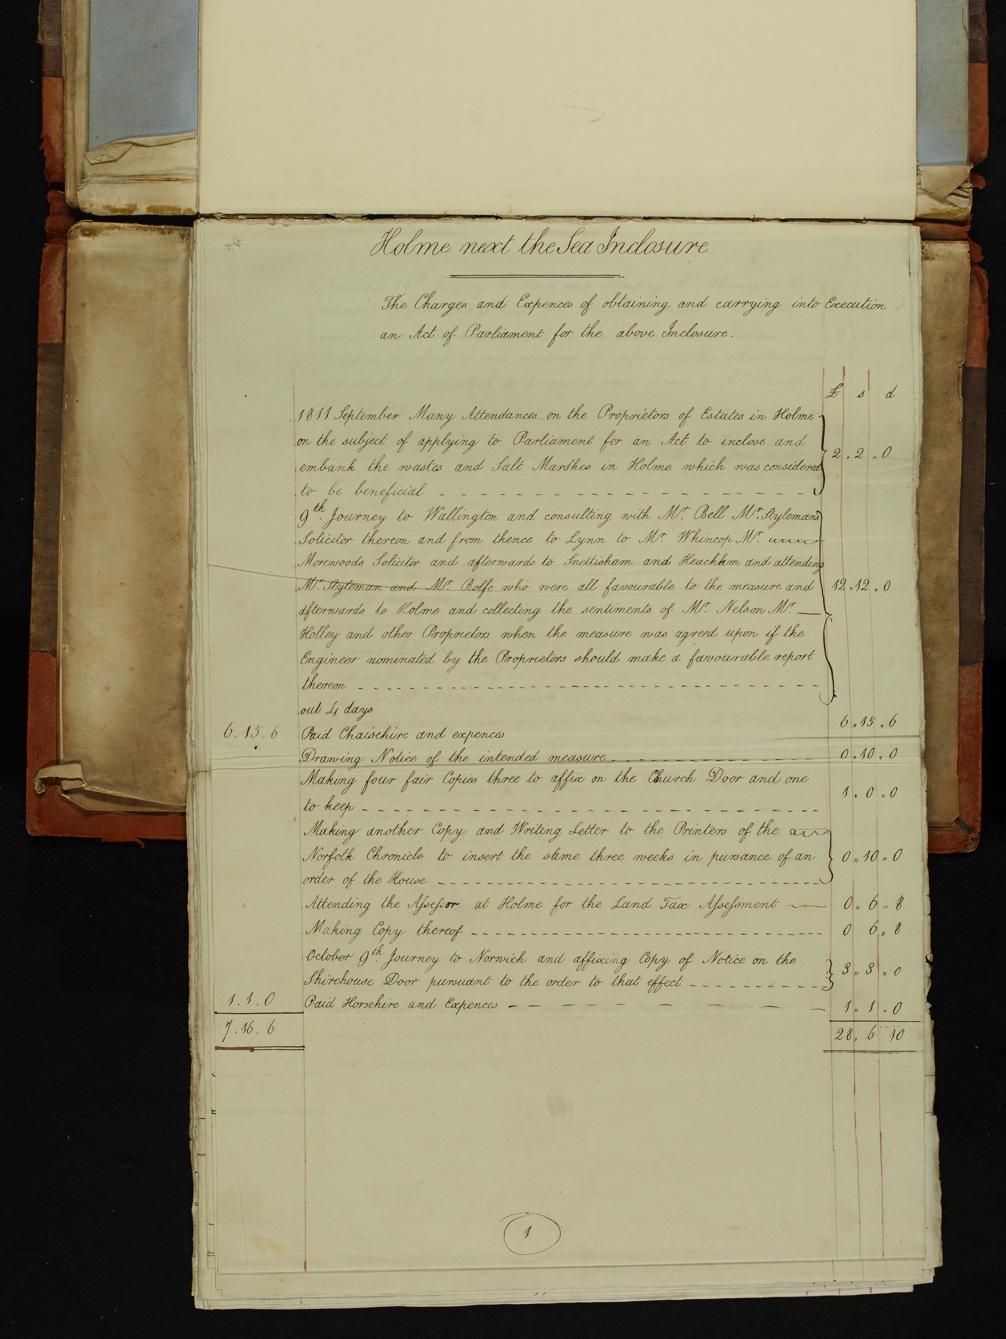 Holme next the Sea Inclosure
The Charges and Expences of obtaining and carrying into Execution
an Act of Parliament for the above Inclosure.
£ s d
1811 September Many Attendances on the Proprietors of Estates in Holme
on the subject of applying to Parliament for an Act to inclose and
embank the wastes and Salt Marshes in Holme which was considered 2 . 2 . 0
to be beneficial
9th Journey to Wallington and consulting with Mr. Bell Mr. Stylemans
Solicitor thereon and from thence to Lynn to Mr. Whincop Mr.
Morewoods Solicitor and afterwards to Snettisham and Heacham and attending
Mr. Styleman and Mr. Rolfe who were all favourable to the measure and 12 . 12 . 0
afterwards to Holme and collecting the sentiments of Mr. Nelson Mr.
Holley and other Proprietors when the measure was agreed upon if the
Engineer nominated by the Proprietors should make a favourable report
thereon
out 4 days
6 . 15 . 6 Paid Chaisehire and expences 6 . 15 . 6
Drawing Notice of the intended measure 0 . 10 . 0
Making four fair Copies three to affix on the Church Door and one
to keep 1 . 0 . 0
Making another Copy and Writing Letter to the Printers of the
Norfolk Chronicle to insert the same three weeks in pursance of an 0 . 10 . 0
order of the House
Attending the Assessor at Holme for the Land Tax Assessment 0 . 6 . 8
Making Copy thereof 0 6 . 8
October 9th Journey to Norwich and affixing Copy of Notice on the
Shirehouse Door pursuant to the order to that effect 3 . 3 . 0
1 . 1 . 0 Paid Horsehire and Expences 1 . 1 . 0
7 . 16 . 6 28 . 6 10
1